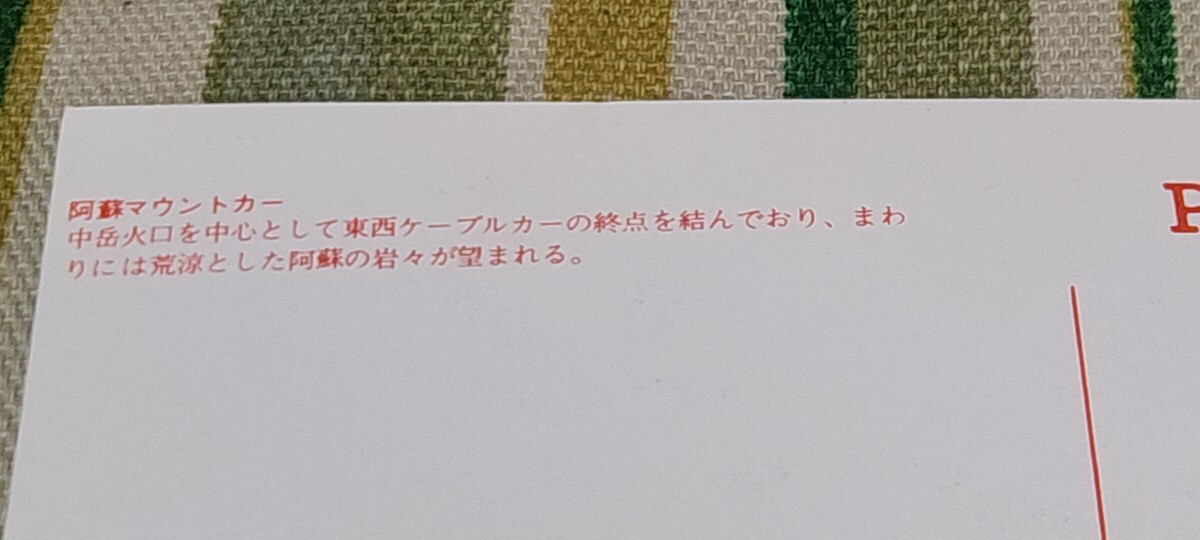 阿蘇マウントカー
中岳火口を中心として東西ケーブルカーの終点を結んでおり、まわ
りには荒涼とした阿蘇の岩々が望まれる。
P